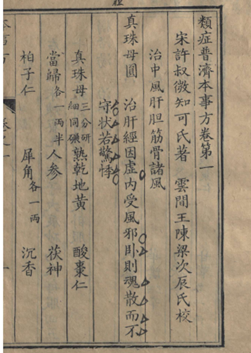 類症普濟本事方卷第一
宋許叔微知可氏著 雲間王陳梁次辰氏校
治中風肝胆筋骨諸風
真珠母圓 治肝經因虛內受風邪卧則魂散而不
守狀若驚悸
真珠母三分研細同碾 熟乾地黃
當歸各一兩半 人參 酸棗仁
柏子仁 犀角各一兩 茯神
沉香